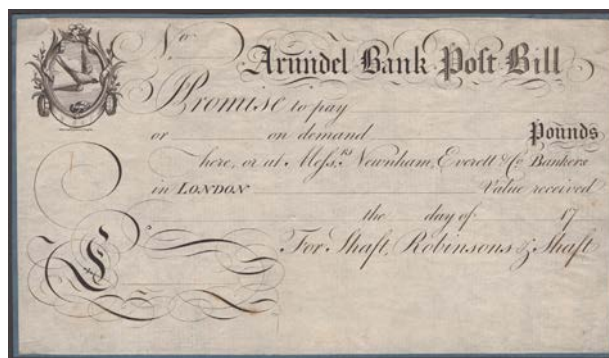 No. Arundel Bank Poſt Bill
Promise to pay
or on demand Pounds
here, or at Meſs.rs Newnham, Everett & Co Bankers
in LONDON Value received
the day of 17
For Shaft, Robinsons & Shaft
£